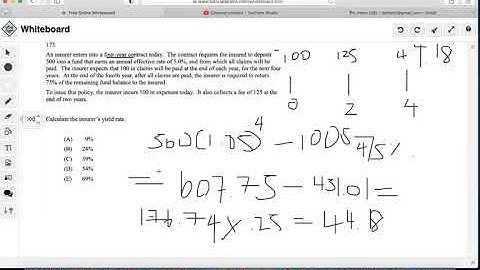 Free Online Whiteboard
Whiteboard
173.
An insurer enters into a four-year contract today. The contract requires the insured to deposit
500 into a fund that earns an annual effective rate of 5.0%, and from which all claims will be
paid. The insurer expects that 100 in claims will be paid at the end of each year, for the next four
years. At the end of the fourth year, after all claims are paid, the insurer is required to return
75% of the remaining fund balance to the insured.
To issue this policy, the insurer incurs 100 in expenses today. It also collects a fee of 125 at the
end of two years.
Calculate the insurer's yield rate.
(A) 9%
(B) 24%
(C) 39%
(D) 54%
(E) 69%
-100 125 44.18
0 2 4
500(1.05)^4 - 100S4/5%
= 607.75 - 431.01 =
176.74 x .25 = 44.18